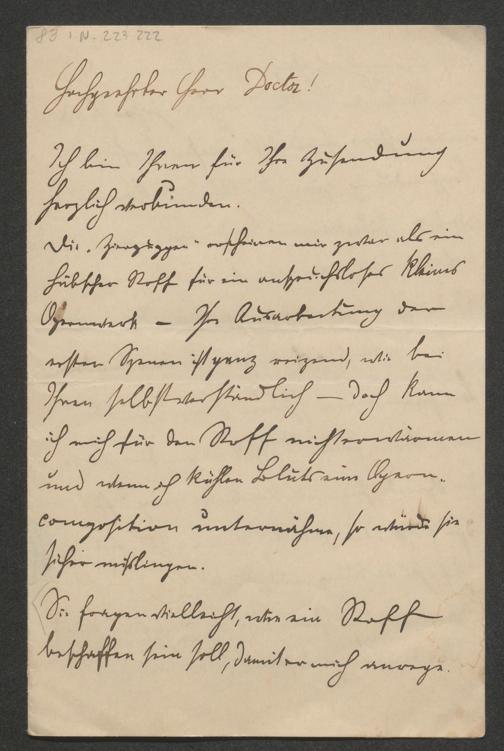 83 I.N. 223 222
Hochgeehrter Herr Doctor!
Ich bin Ihnen für Ihre Zusendung
herzlich verbunden.
Die „ erscheinen mir zwar als ein
hübscher Stoff für ein anspruchsloses kleines
Opernwerk – Ihre Ausarbeitung der
ersten Szenen ist ganz reizend, wie bei
Ihnen selbstverständlich – doch kann
ich mich für den Stoff nicht erwärmen
und wenn ich kühlen Bluts eine Opern-
composition unternähme, so würde sie
sicher mißlingen.
Sie fragen vielleicht, wie ein Stoff
beschaffen sein soll, damit er mich anrege.